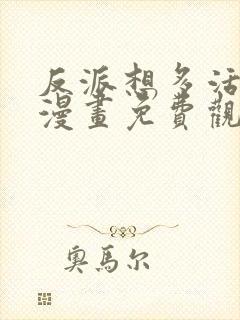 反派想多活
漫畫免費觀
奧馬尔